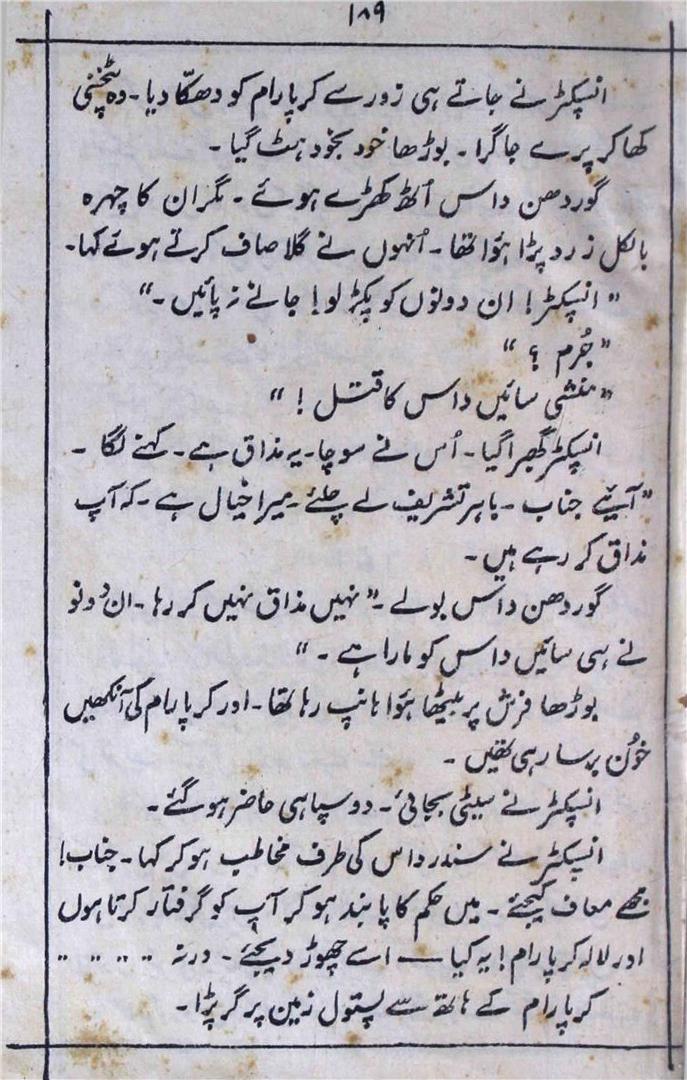 ۱۸۹
انسپکٹر نے جاتے ہی زور سے کرپا رام کو دھکّا دیا۔ وہ پٹخنی
کھا کر پرے جا گرا۔ بوڑھا خود بخود ہٹ گیا۔
گوردھن داس اُٹھ کھڑے ہوئے۔ مگر ان کا چہرہ
بالکل زرد پڑا ہؤا تھا۔ اُنہوں نے گلا صاف کرتے ہوئے کہا۔
”انسپکٹر! ان دونوں کو پکڑ لو! جانے نہ پائیں۔“
”جُرم ؟“
”منشی سائیں داس کا قتل !“
انسپکٹر گھبرا گیا۔ اُس نے سوچا۔ یہ مذاق ہے۔ کہنے لگا ۔
”آیئے جناب ۔ باہر تشریف لے چلئے ۔ میرا خیال ہے ۔ کہ آپ
مذاق کر رہے ہیں۔
گوردھن داس بولے ۔” نہیں مذاق نہیں کر رہا ۔ ان دونو
نے ہی سائیں داس کو مارا ہے ۔“
بوڑھا فرش پر بیٹھا ہؤا ہانپ رہا تھا۔ اور کرپا رام کی آنکھیں
خوُن برسا رہی تھیں ۔
انسپکٹر نے سیٹی بجائی ۔ دو سپاہی حاضر ہو گئے۔
انسپکٹر نے سندر داس کی طرف مخاطب ہو کر کہا۔ جناب!
مجھے معاف کیجئے ۔ میں حکم کا پابند ہو کر آپ کو گرفتار کرتا ہوں
اور لالہ کرپا رام! یہ کیا — اسے چھوڑ دیجئے ۔ ورنہ ۔۔ ۔۔ ۔۔ ۔۔
کرپا رام کے ہاتھ سے پستول زمین پر گر پڑا۔